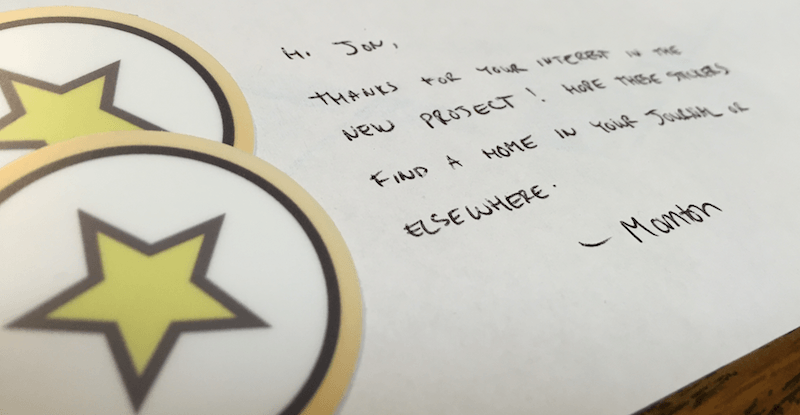 HI JON,
THANKS FOR YOUR INTEREST IN THE
NEW PROJECT! HOPE THESE STICKERS
FIND A HOME IN YOUR JOURNAL OR
ELSEWHERE.
— Manton